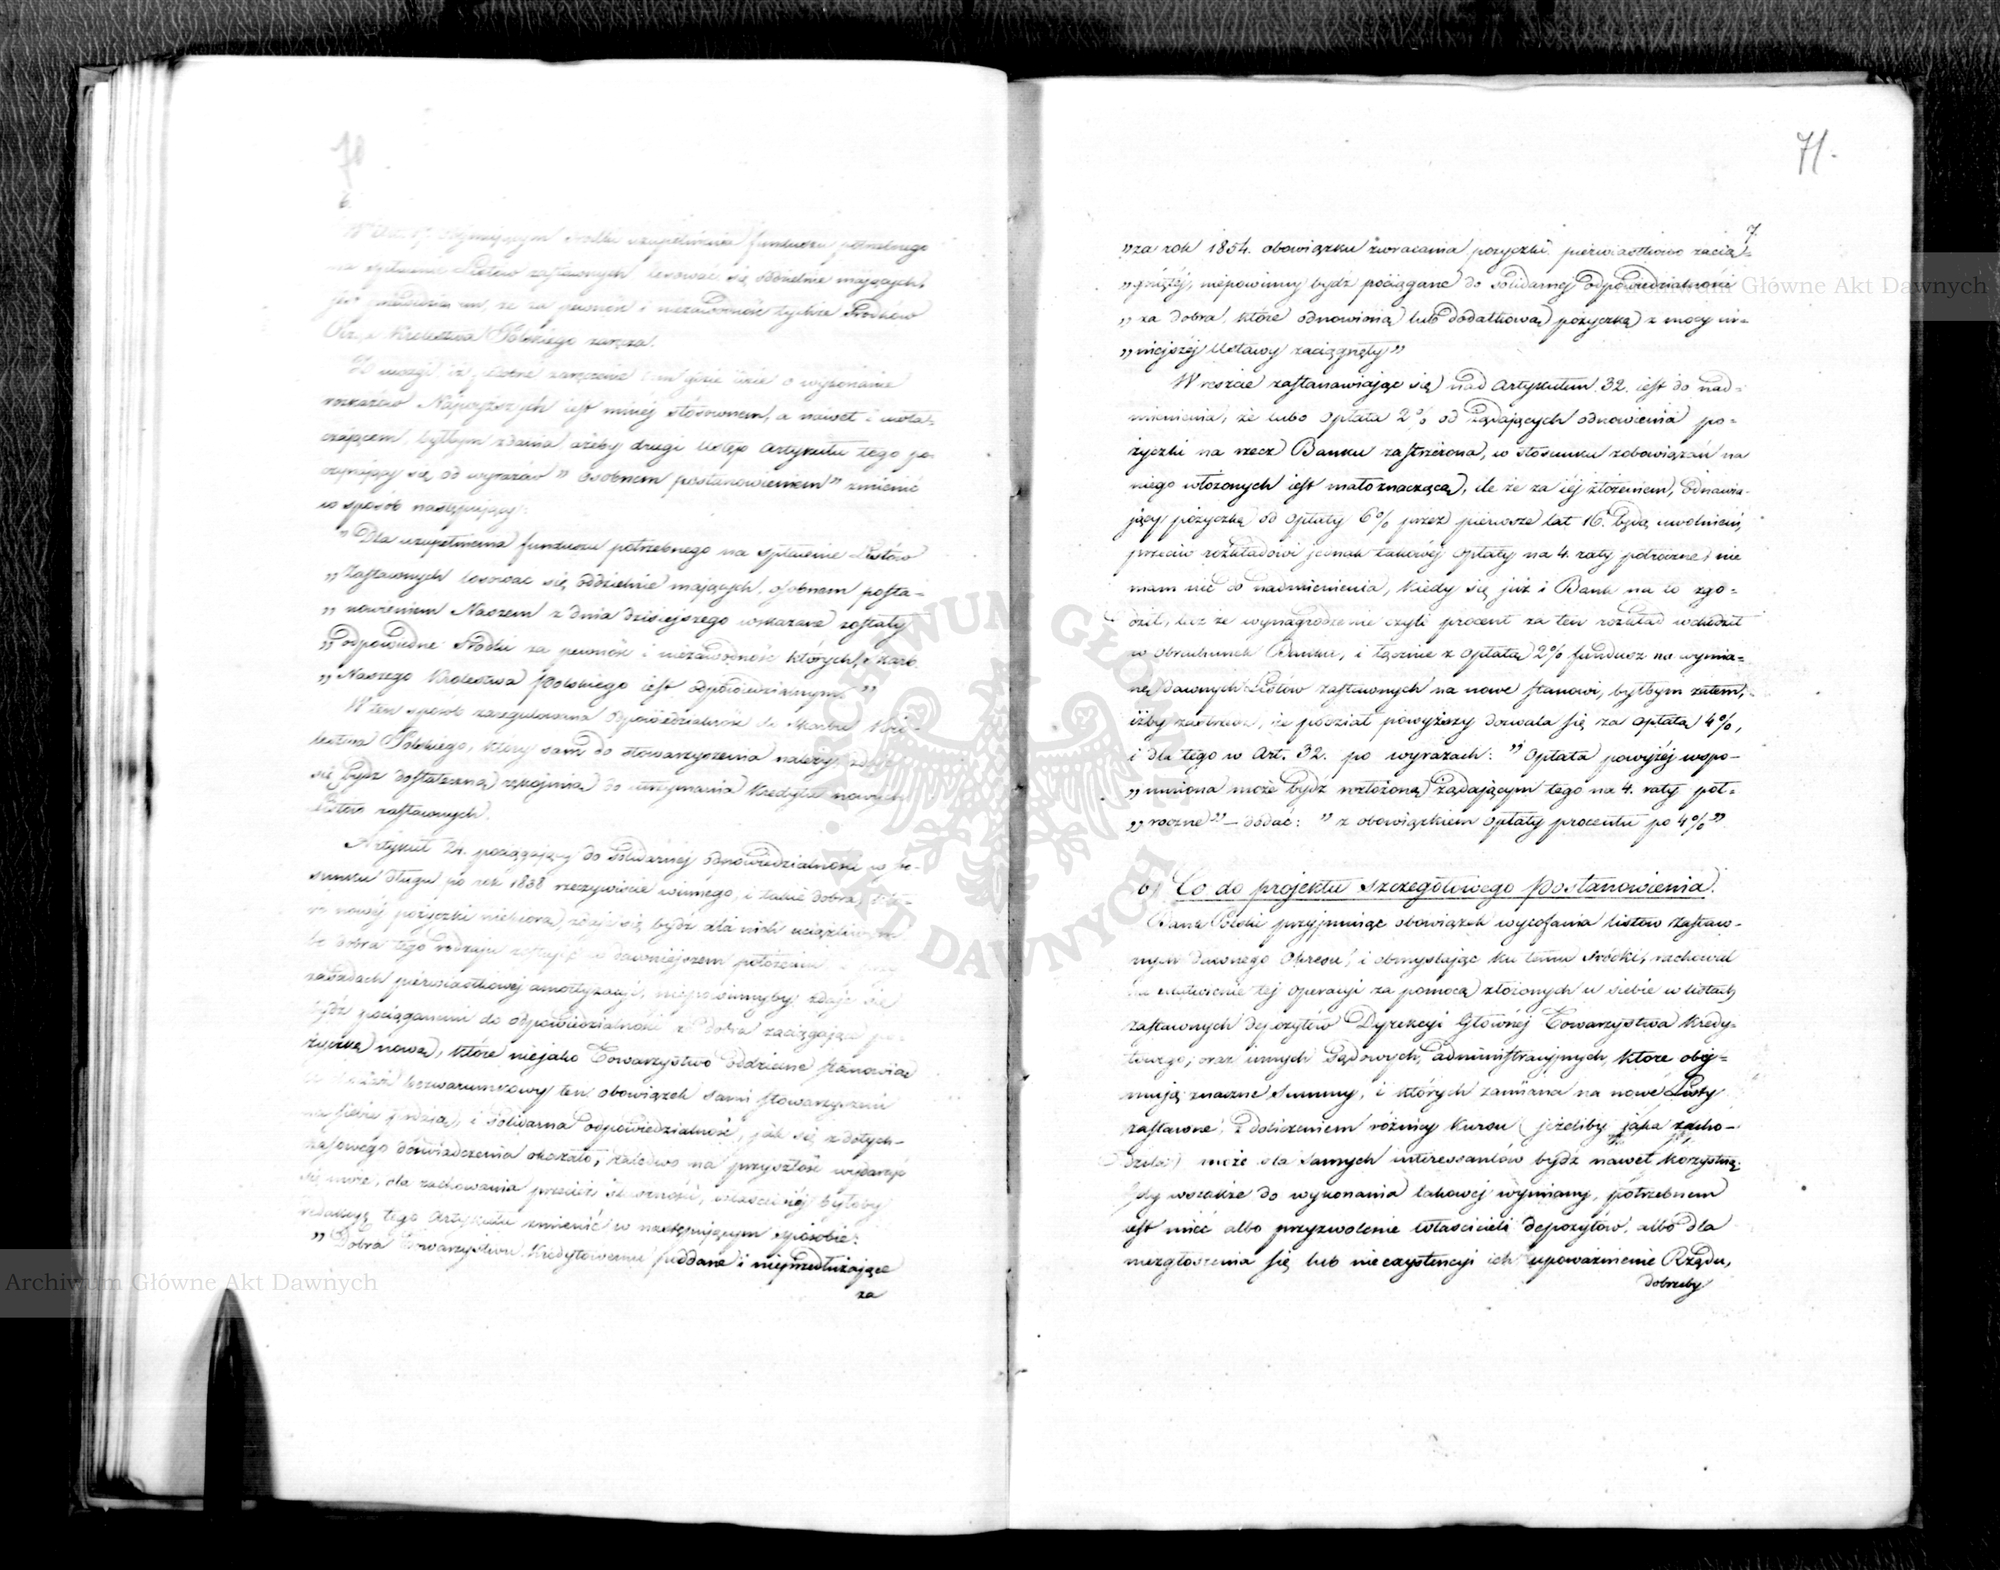 70
6.
środki uzupełnienia funduszu potrzebnego
na spłacenie Listów zastawnych losować się oddzielnie mających,
że za pewność i niezawodność tychże środków
Królestwa Polskiego zaręcza.
tam gdzie idzie o wykonanie
rozkazów Najwyższych jest mniej stósownem, a nawet i uwła-
czającem, byłbym zdania ażeby drugi ustęp Artykułu tego po-
czynający się od wyrazów „osobnem postanowieniem” zmienić
w sposób następujący:
„Dla uzupełnienia funduszu potrzebnego na spłacenie Listów
„Zastawnych losować się oddzielnie mających, osobnem posta-
„nowieniem Naszem z dnia dzisiejszego wskazane zostały
„odpowiednie środki za pewność i niezawodność których Skarb
„Naszego Królestwa Polskiego jest odpowiedzialnym.”
W ten sposób zaregulowana odpowiedzialność Skarbu Kró-
lestwa Polskiego, który sam do stowarzyszenia należy, zdaje
się bydź dostateczną rękojmią do utrzymania kredytu nowych
Listów zastawnych.
Artykuł 24. pociągający do Solidarnéj odpowiedzialności w sto-
sunku długu po rok 1838 rzeczywiście winnego, i takie dobra, któ-
re nowéj pożyczki niebiorą, zdaje się bydź dla nich uciążliwym
bo dobra tego rodzaju w dawniejszem położeniu
zasadach pierwiastkowéj amortyzacyi, niepowinnyby zdaje się
bydź pociąganemi do odpowiedzialności z dobra zaciągające po-
życzkę nową, które niejako Towarzystwo oddzielne stanowiąc
bezwarunkowy ten obowiązek sami stowarzyszeni
na siebie i Solidarna odpowiedzialność, jak się z dotych-
czasowego doświadczenia okazało, zaledwo na przyszłość wydarzyć
się może, dla zachowania przecież słuszności, właściwiéj byłoby
redakcyą tego Artykułu zmienić w następującym sposobie:
„Dobra Towarzystwu Kredytowemu poddane i nieprzedłużające
za
71.
7.
„za rok 1854. obowiązku zwracania pożyczki pierwiastkowo zacią-
„gniętéj, niepowinny bydź pociągane do solidarnéj odpowiedzialności
„za dobra, które odnowioną lub dodatkową pożyczkę z mocy ni-
„niejszéj Ustawy zaciągnęły”
Wreszcie zastanawiając się nad Artykułem 32. jest do nad-
mienienia, że lubo Opłata 2% od żądających odnowienia po-
życzki na rzecz Banku zastrzeżona, w stosunku zobowiązań na
niego włożonych jest małoznaczącą, ile że za jéj złożeniem, odnawia-
jący pożyczkę od opłaty 6% przez pierwsze lat 16. będą uwolnieni,
przeciw rozkładowi jednak takowéj opłaty na 4. raty półroczne nie
mam nic do nadmienienia, kiedy się już i Bank na to zgo-
dził, lecz że wynagrodzenie czyli procent za ten rozkład wchodził
w obrachunek Banku, i łącznie z opłatą 2% fundusz na wymia-
nę dawnych Listów zastawnych na nowe stanowi, byłbym zatem,
iżby zastrzedz, że podział powyższy dozwala się za opłatą 4%,
i dla tego w Art. 32. po wyrazach: „Opłata powyżéj wspo-
„mniona może bydź rozłożoną żądającym tego na 4. raty pół-
„roczne” – dodać: „z obowiązkiem opłaty procentu po 4%”
b) Co do projektu szczegółowego postanowienia.
Bank Polski przyjmując obowiązek wycofania listów zastaw-
nych dawnego Okresu, i obmyślając ku temu środki, rachował
na ułatwienie téj operacyi za pomocą złożonych u siebie w listach
zastawnych depozytów Dyrekcyi Głównéj Towarzystwa Kredy-
towego, oraz innych Sądowych, administracyjnych, które obej-
mują znaczne summy, i których zamiana na nowe Listy
zastawne, z doliczeniem różnicy kursu (jeżeliby jaka zacho-
dziła) może dla samych interessantów bydź nawet korzystną;
Gdy wszakże do wykonania takowéj wymiany, potrzebnem
jest mieć albo przyzwolenie właścicieli depozytów, albo dla
niezgłoszenia się lub nieexystencyi ich upoważnienie Rządu,
dobrzeby
Archiwum Główne Akt Dawnych
Archiwum Główne Akt Dawnych
ARCHIWUM GŁÓWNE AKT DAWNYCH